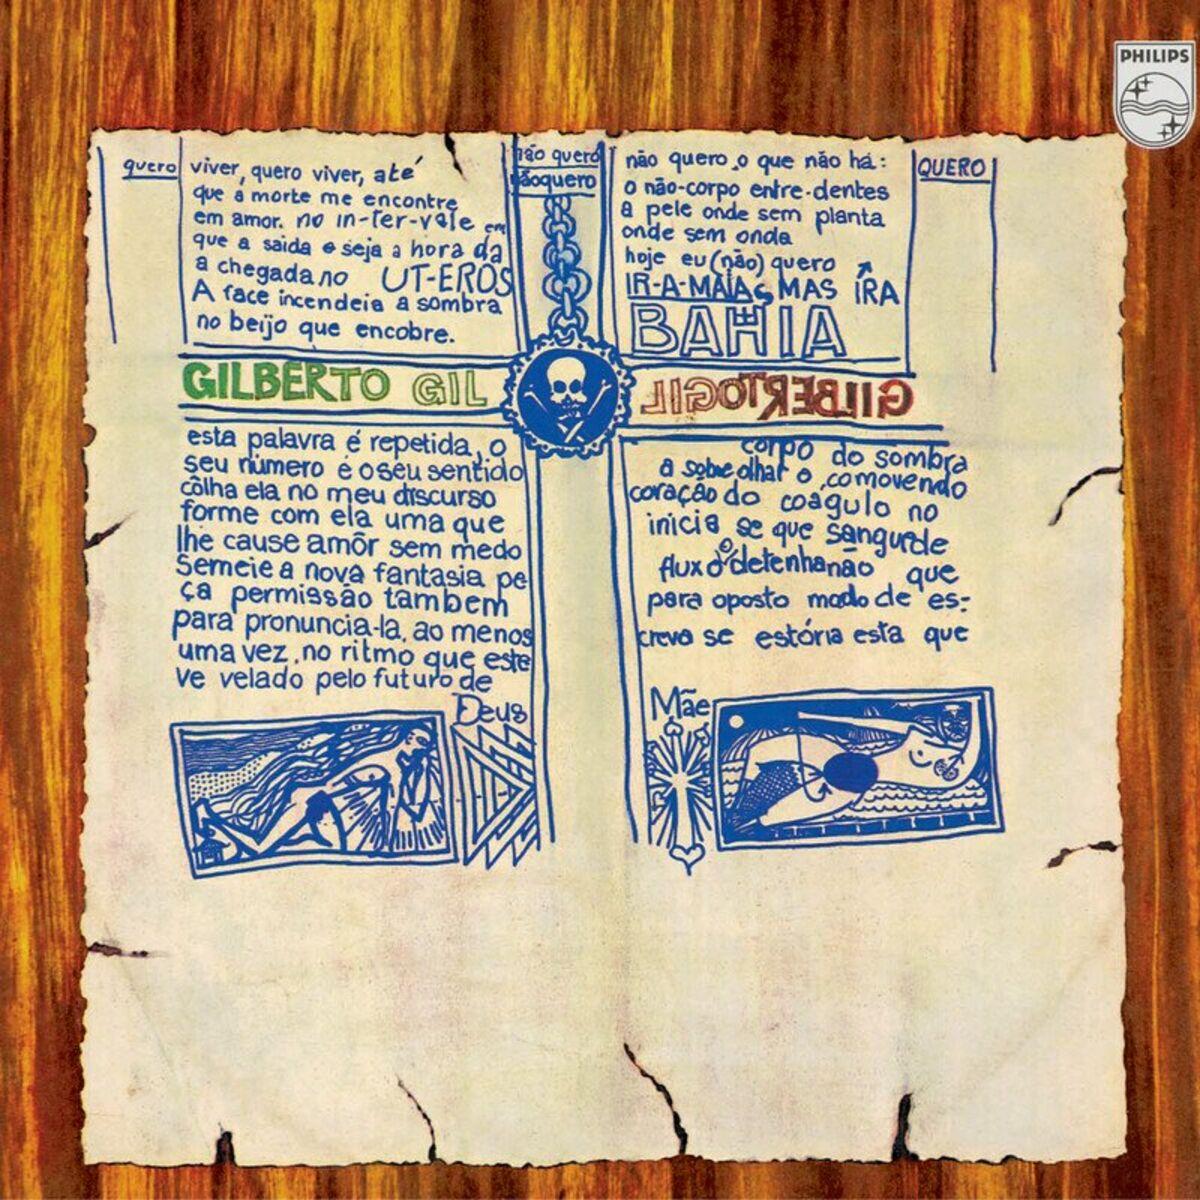 PHILIPS
quero
viver, quero viver, até
que a morte me encontre
em amor. no in-ter-vale em
que a saida e seja a hora da
a chegada no UT-EROS
A face incendeia a sombra
no beijo que encobre.
não quero
nãoquero
não quero o que não há:
o não-corpo entre-dentes
a pele onde sem planta
onde sem onda
hoje eu (não) quero
IR-A-MAIAS MAS IRA
BAHIA
QUERO
GILBERTO GIL
GILBERTO GIL
esta palavra é repetida, o
seu número é o seu sentido
côlha ela no meu discurso
forme com ela uma que
lhe cause amôr sem medo
Semeie a nova fantasia pe
ça permissão também
para pronuncia-la, ao menos
uma vez, no ritmo que este
ve velado pelo futuro de
Deus
corpo do sombra
a sobre olhar o comovendo
coração do coagulo no
inicia se que sangue de
fluxo o detenha não que
para oposto modo de es-
creva se estória esta que
Mãe